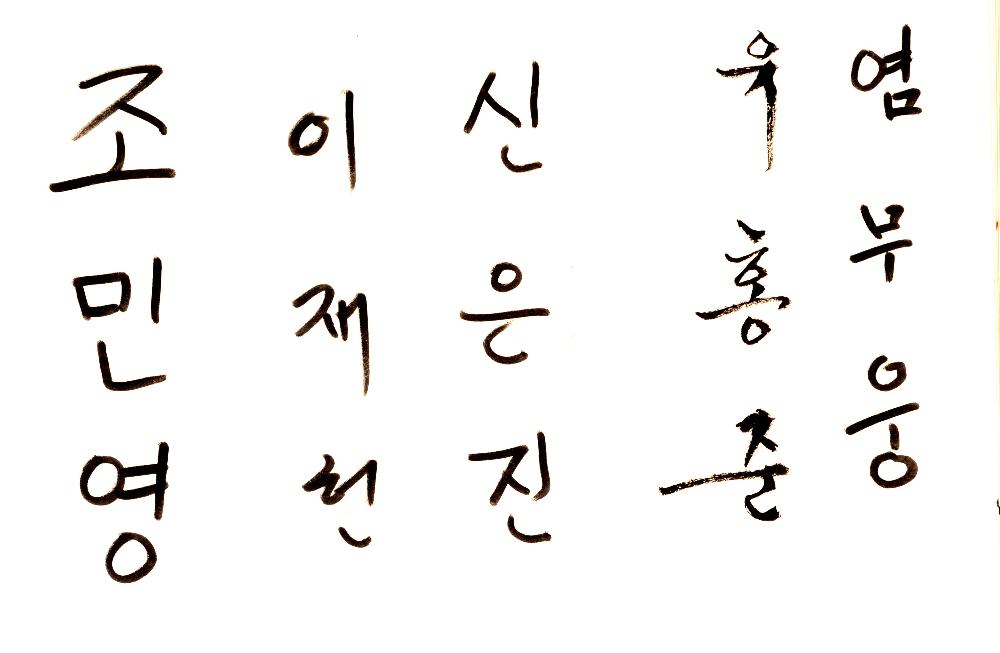 염무웅
유홍준
신은진
이재헌
조민영